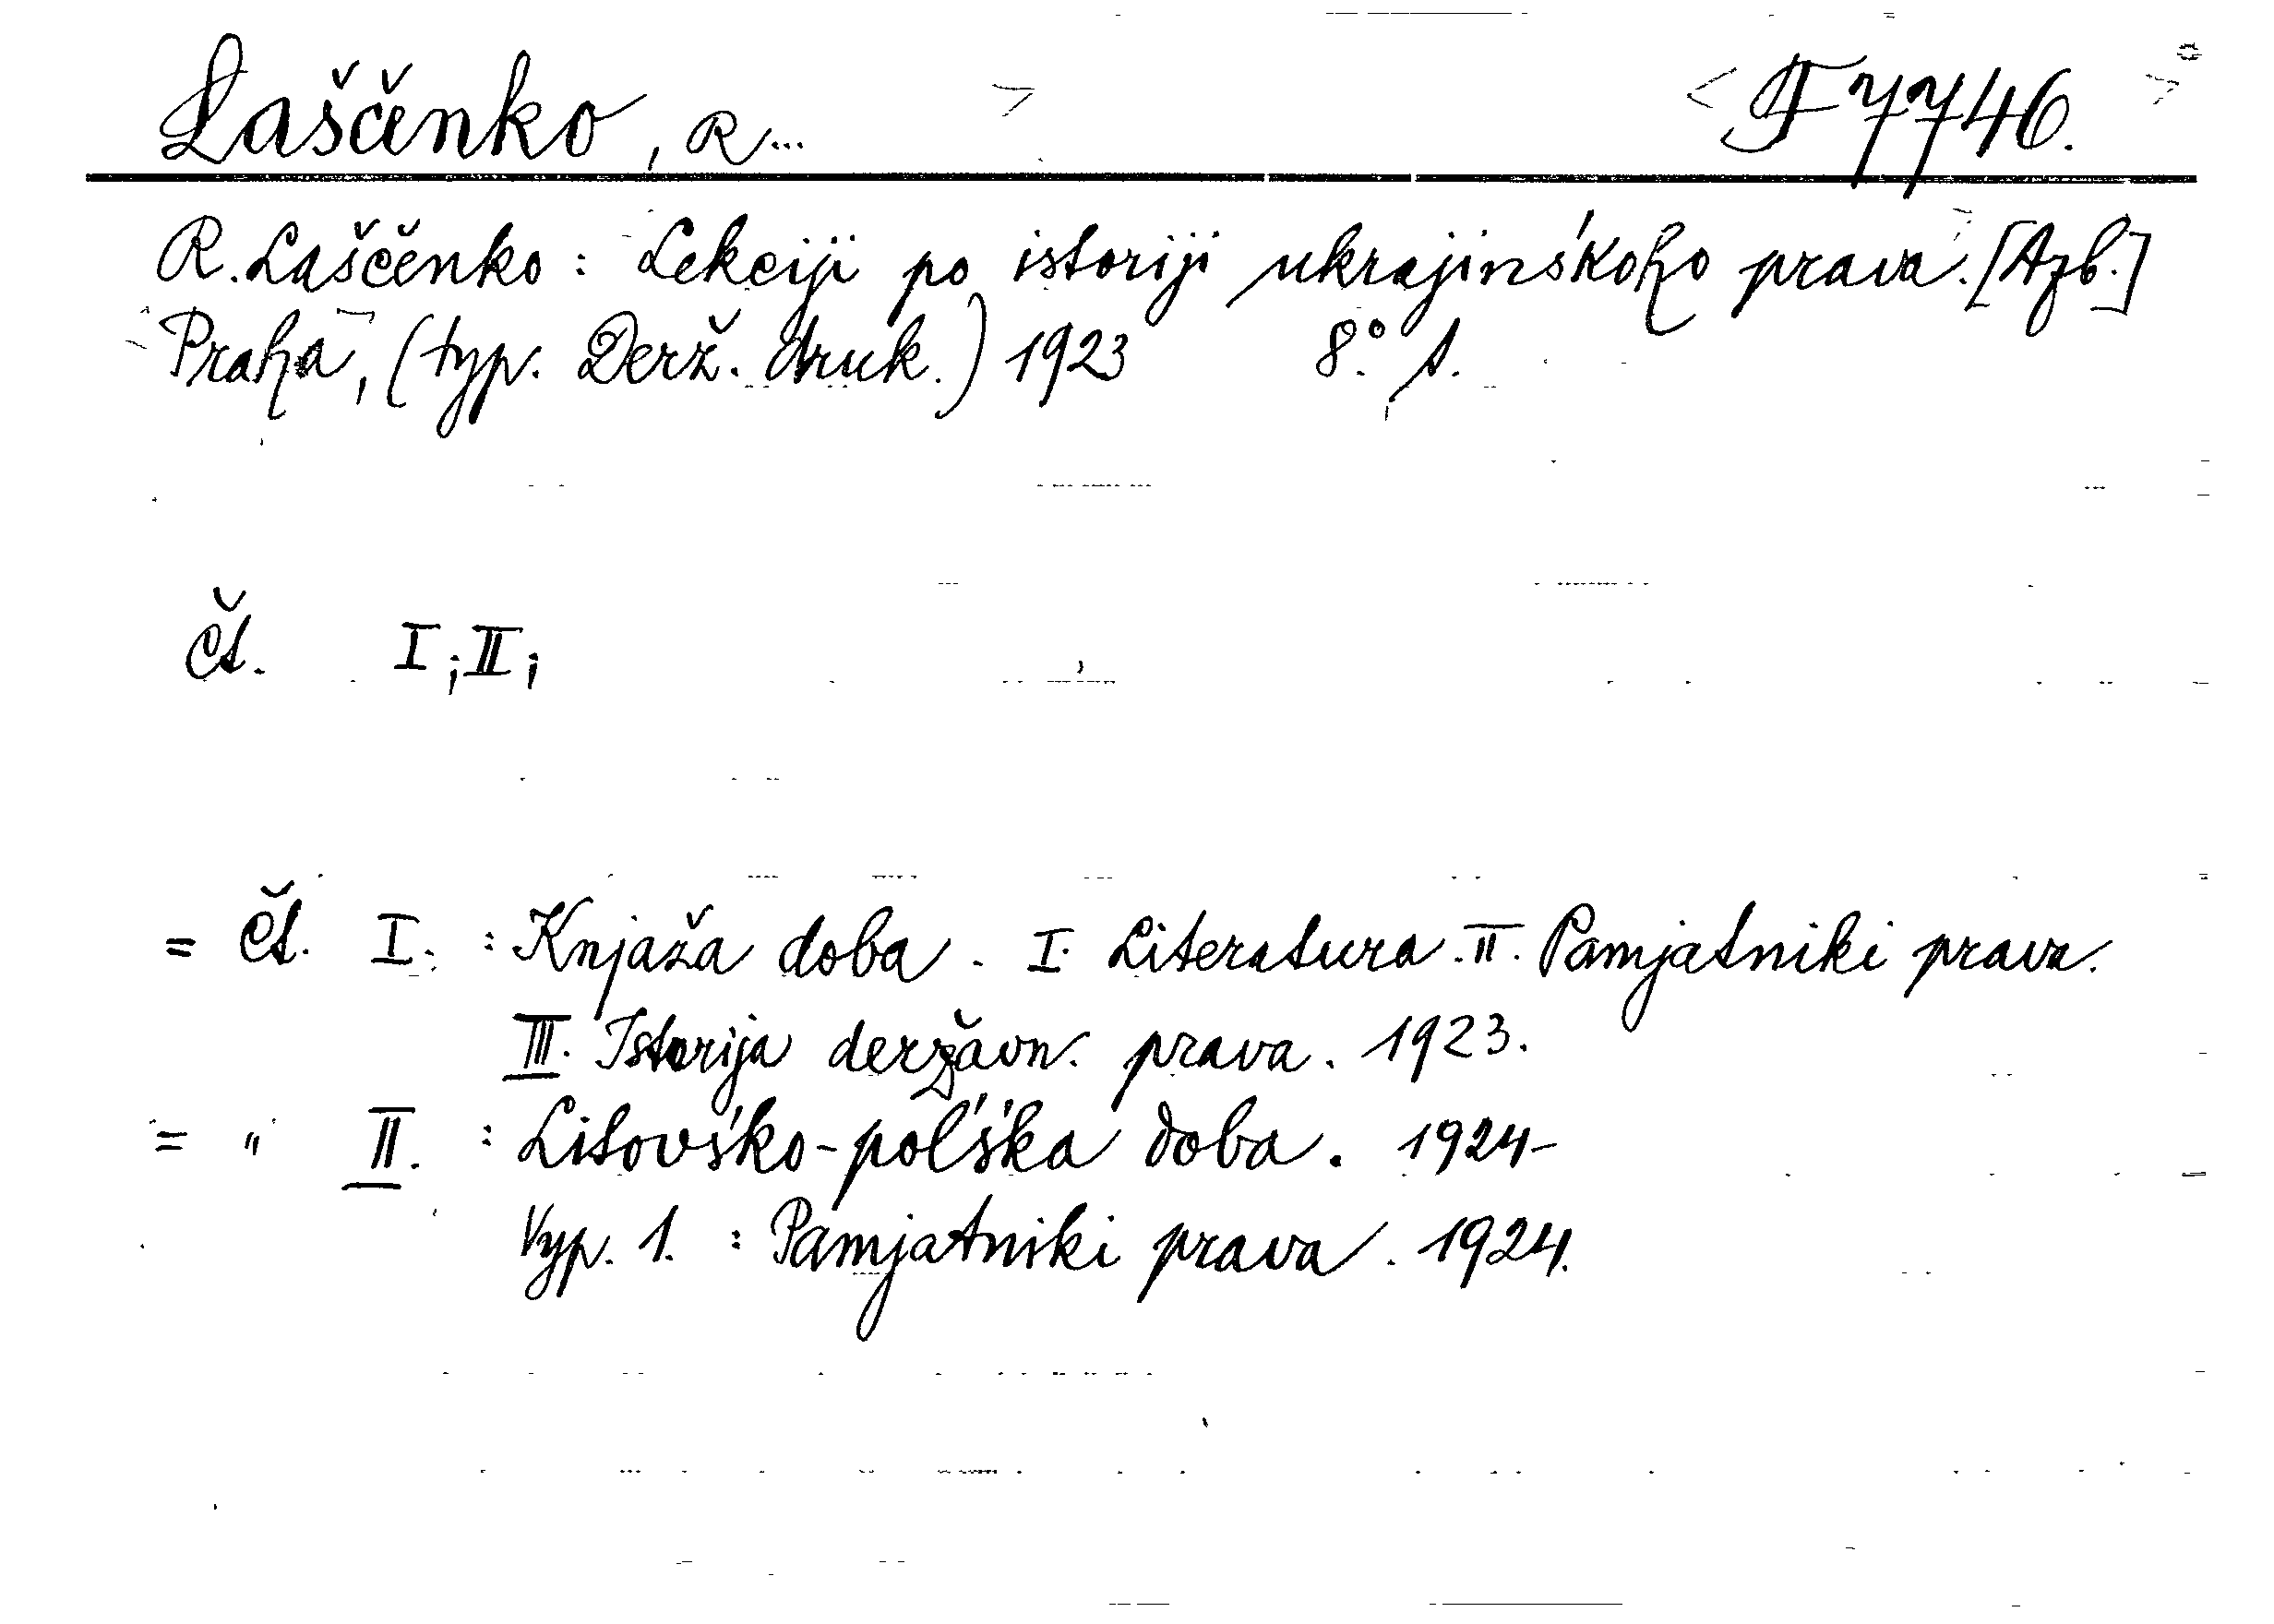 Laščenko, R... F 7746.
R. Laščenko: Lekciji po istoriji ukrajinśkoho prava. [Azb.]
Praha, (typ. Derž. druk.) 1923 8° s.
Čs. I; II;
= Čs. I. : Knjaža doba. I. Literatura. II. Pamjatniki prava.
III. Istorija deržavn. prava. 1923.
= " II. : Litovśko-polśka doba. 1924-
Vyp. 1. : Pamjatniki prava. 1924.